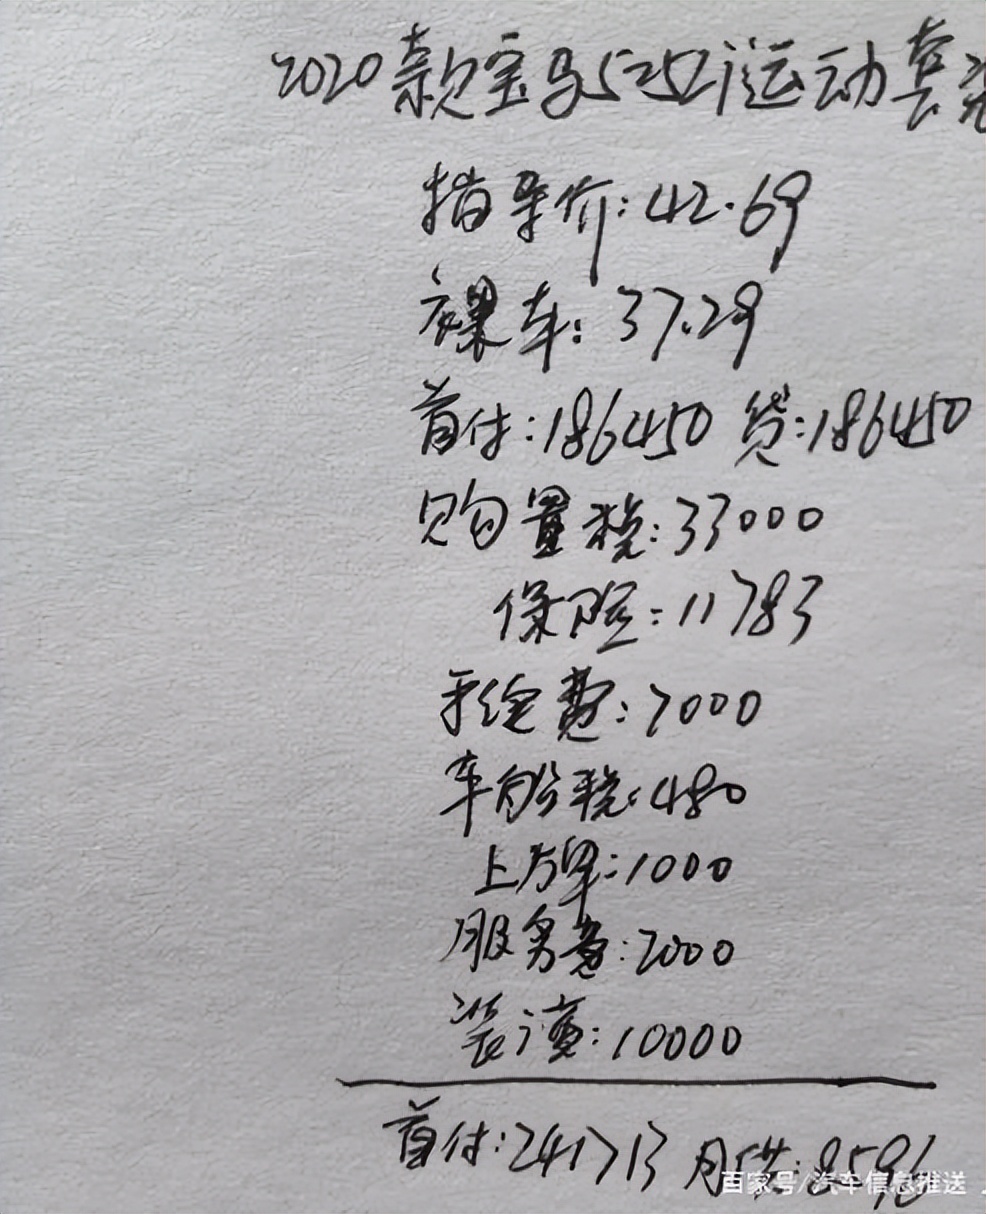 2020款宝马525Li运动套装
指导价:42.69
裸车:37.29
首付:186450 贷:186450
购置税:33000
保险:11783
手续费:7000
车船税:480
上牌:1000
服务费:2000
装潢:10000
首付:241713 月供:8596
百家号/汽车信息推送